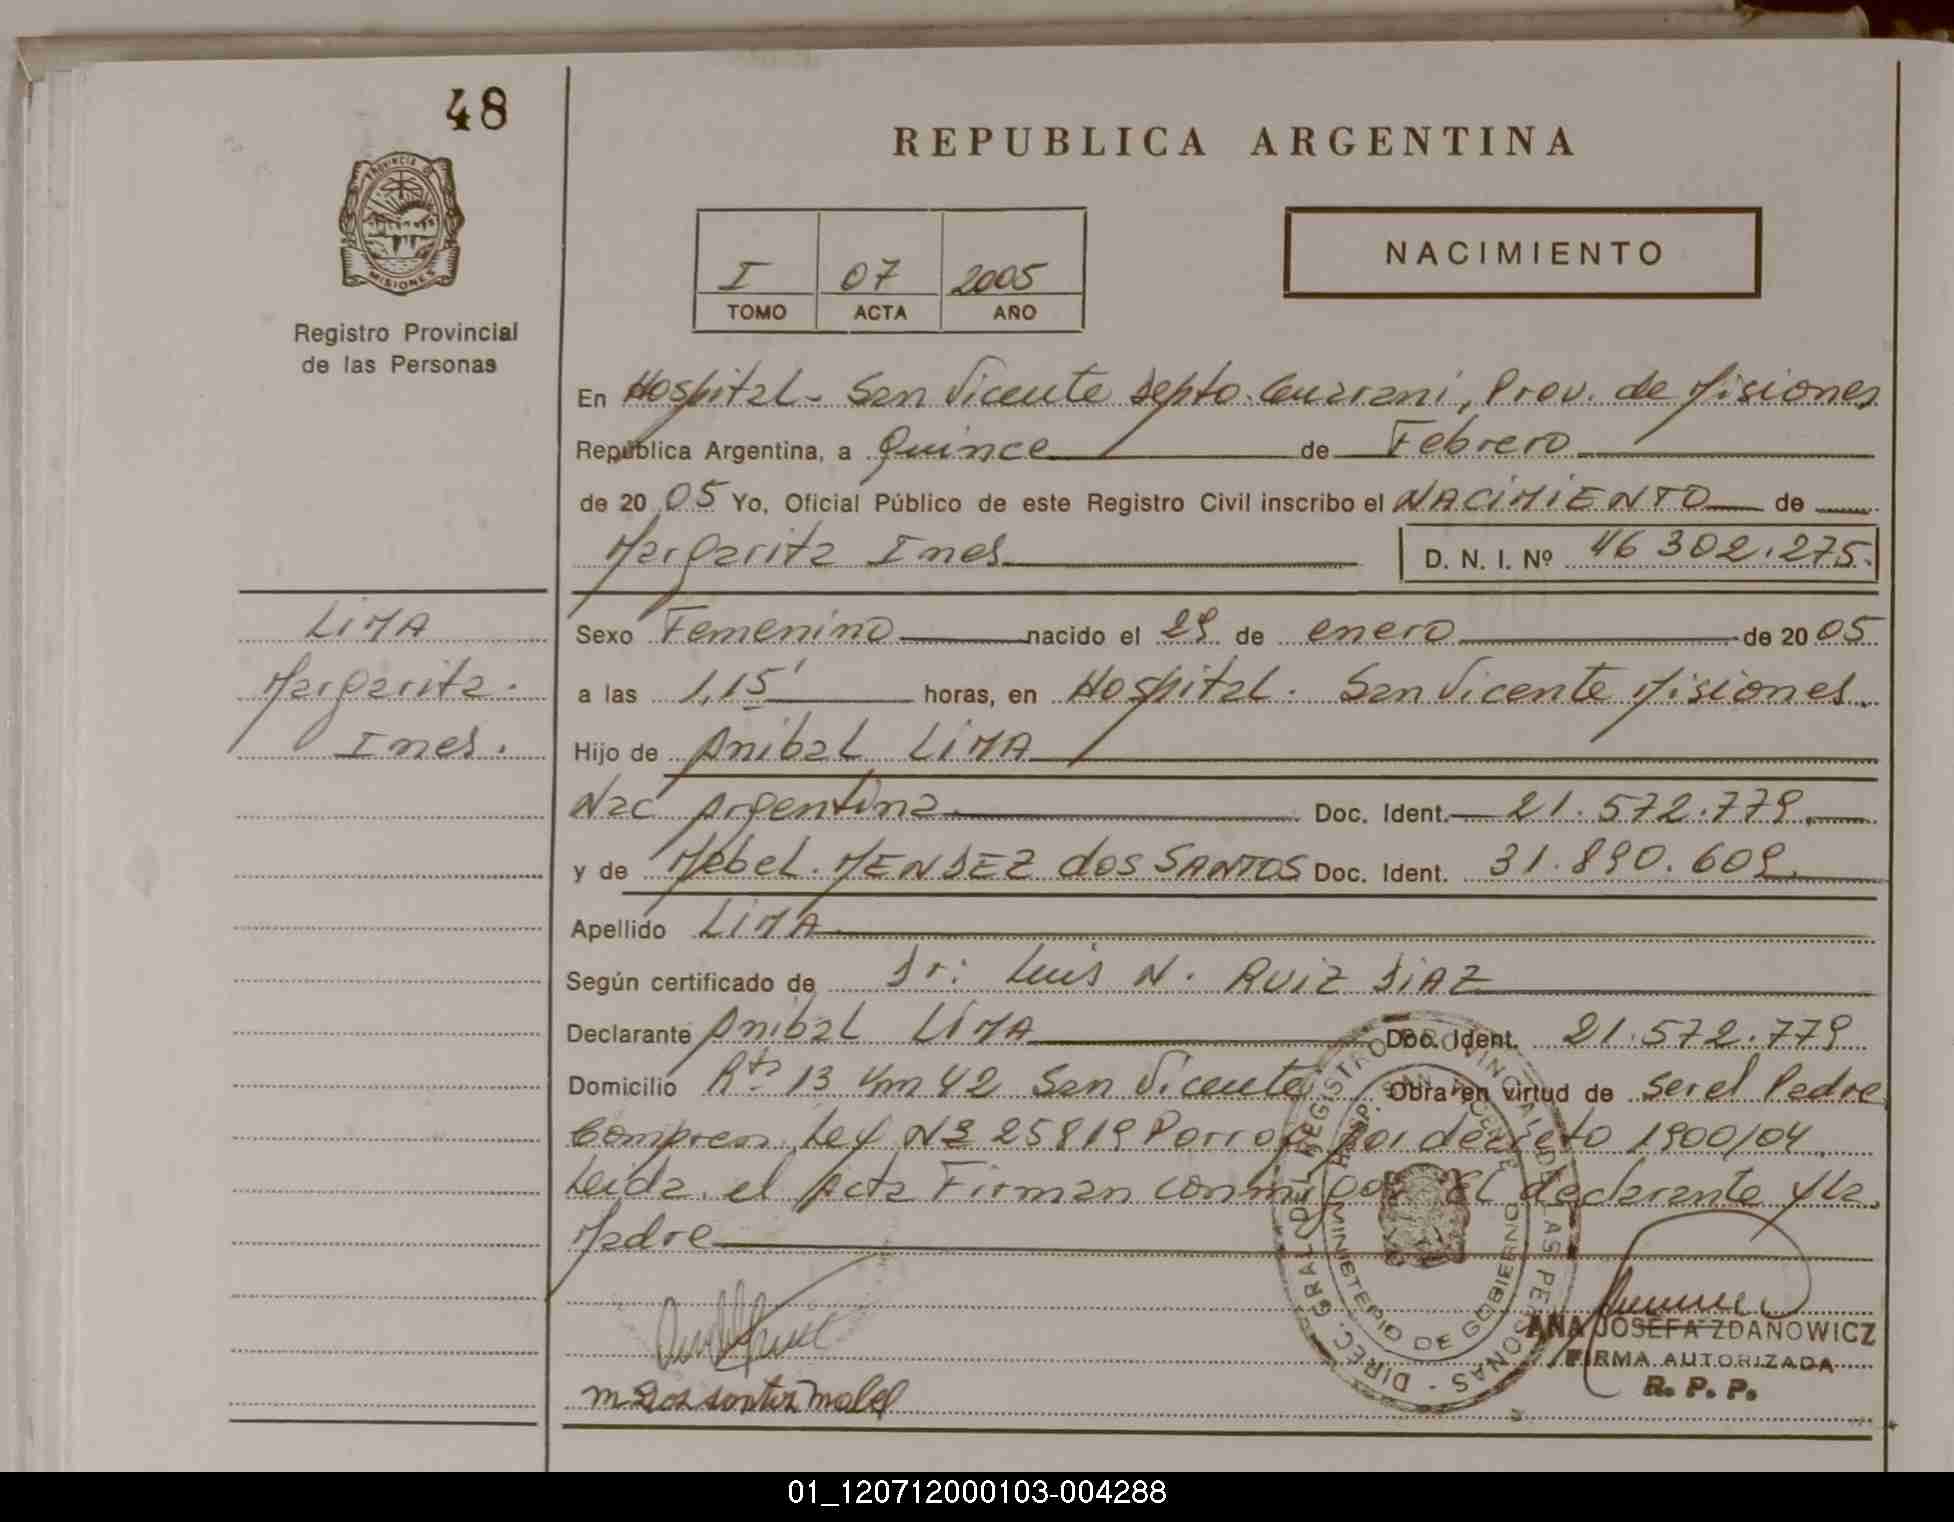 48
PROVINCIA DE
MISIONES
Registro Provincial
de las Personas
REPUBLICA ARGENTINA
I 07 2005
TOMO ACTA AÑO
NACIMIENTO
En Hospital - San Vicente Depto. Guarani, Prov. de Misiones
República Argentina, a Quince de Febrero
de 20 05 Yo, Oficial Público de este Registro Civil inscribo el NACIMIENTO de
Margarita Ines D. N. I. Nº 46 302.275.
LIMA
Margarita.
Ines.
Sexo Femenino nacido el 29 de enero de 20 05
a las 1,15' horas, en Hospital. San Vicente Misiones.
Hijo de Anibal LIMA
Nac Argentina Doc. Ident. 21.572.779.
y de Mabel. MENDEZ dos SANTOS Doc. Ident. 31.890.609.
Apellido LIMA
Según certificado de Dr: Luis N. RUIZ DIAZ
Declarante Anibal LIMA Doc. Ident. 21.572.779
Domicilio Rta 13 Km 42 San Vicente Obra en virtud de ser el Padre
Ley Nº 25819 por decreto 1900/04
Leida el Acta Firman conmigo el declarante y la
Madre
DIREC. GRAL. DEL REGISTRO PROVINCIAL DE LAS PERSONAS
HOSP. SAN VICENTE
MINISTERIO DE GOBIERNO
ANA JOSEFA ZDANOWICZ
FIRMA AUTORIZADA
R. P. P.
M Dos santos Mabel
01_120712000103-004288